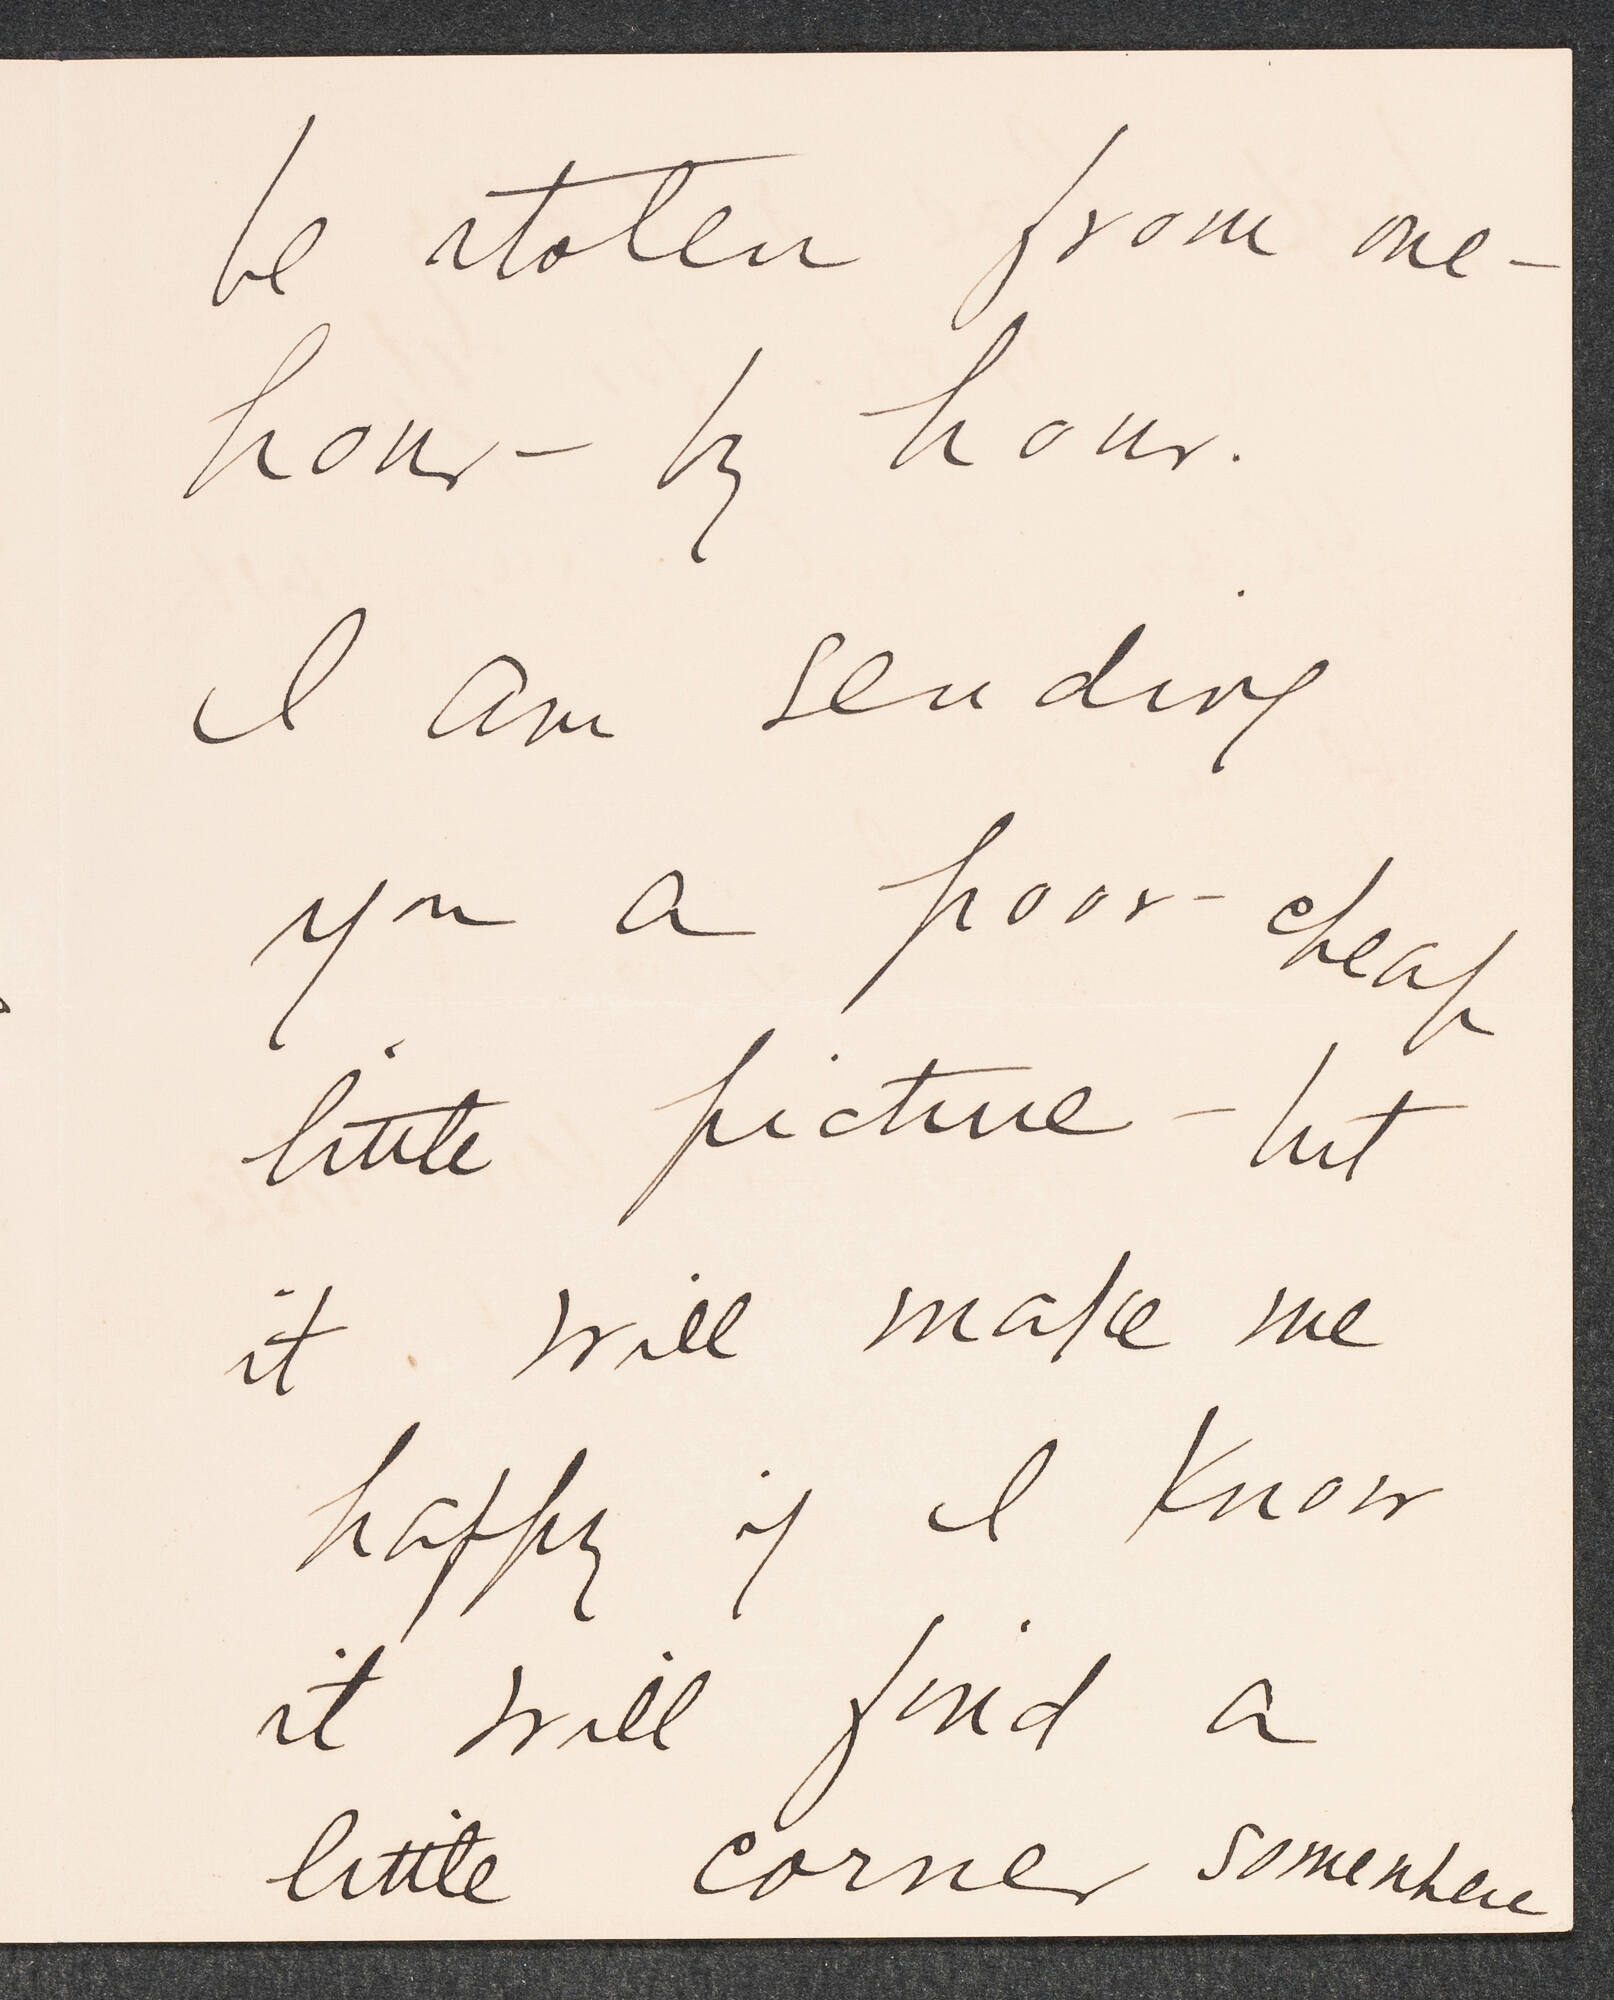 be stolen from one-
hour- by hour.
I am sending
you a poor- cheap
little picture - but
it will make me
happy if I know
it will find a
little corner somewhere